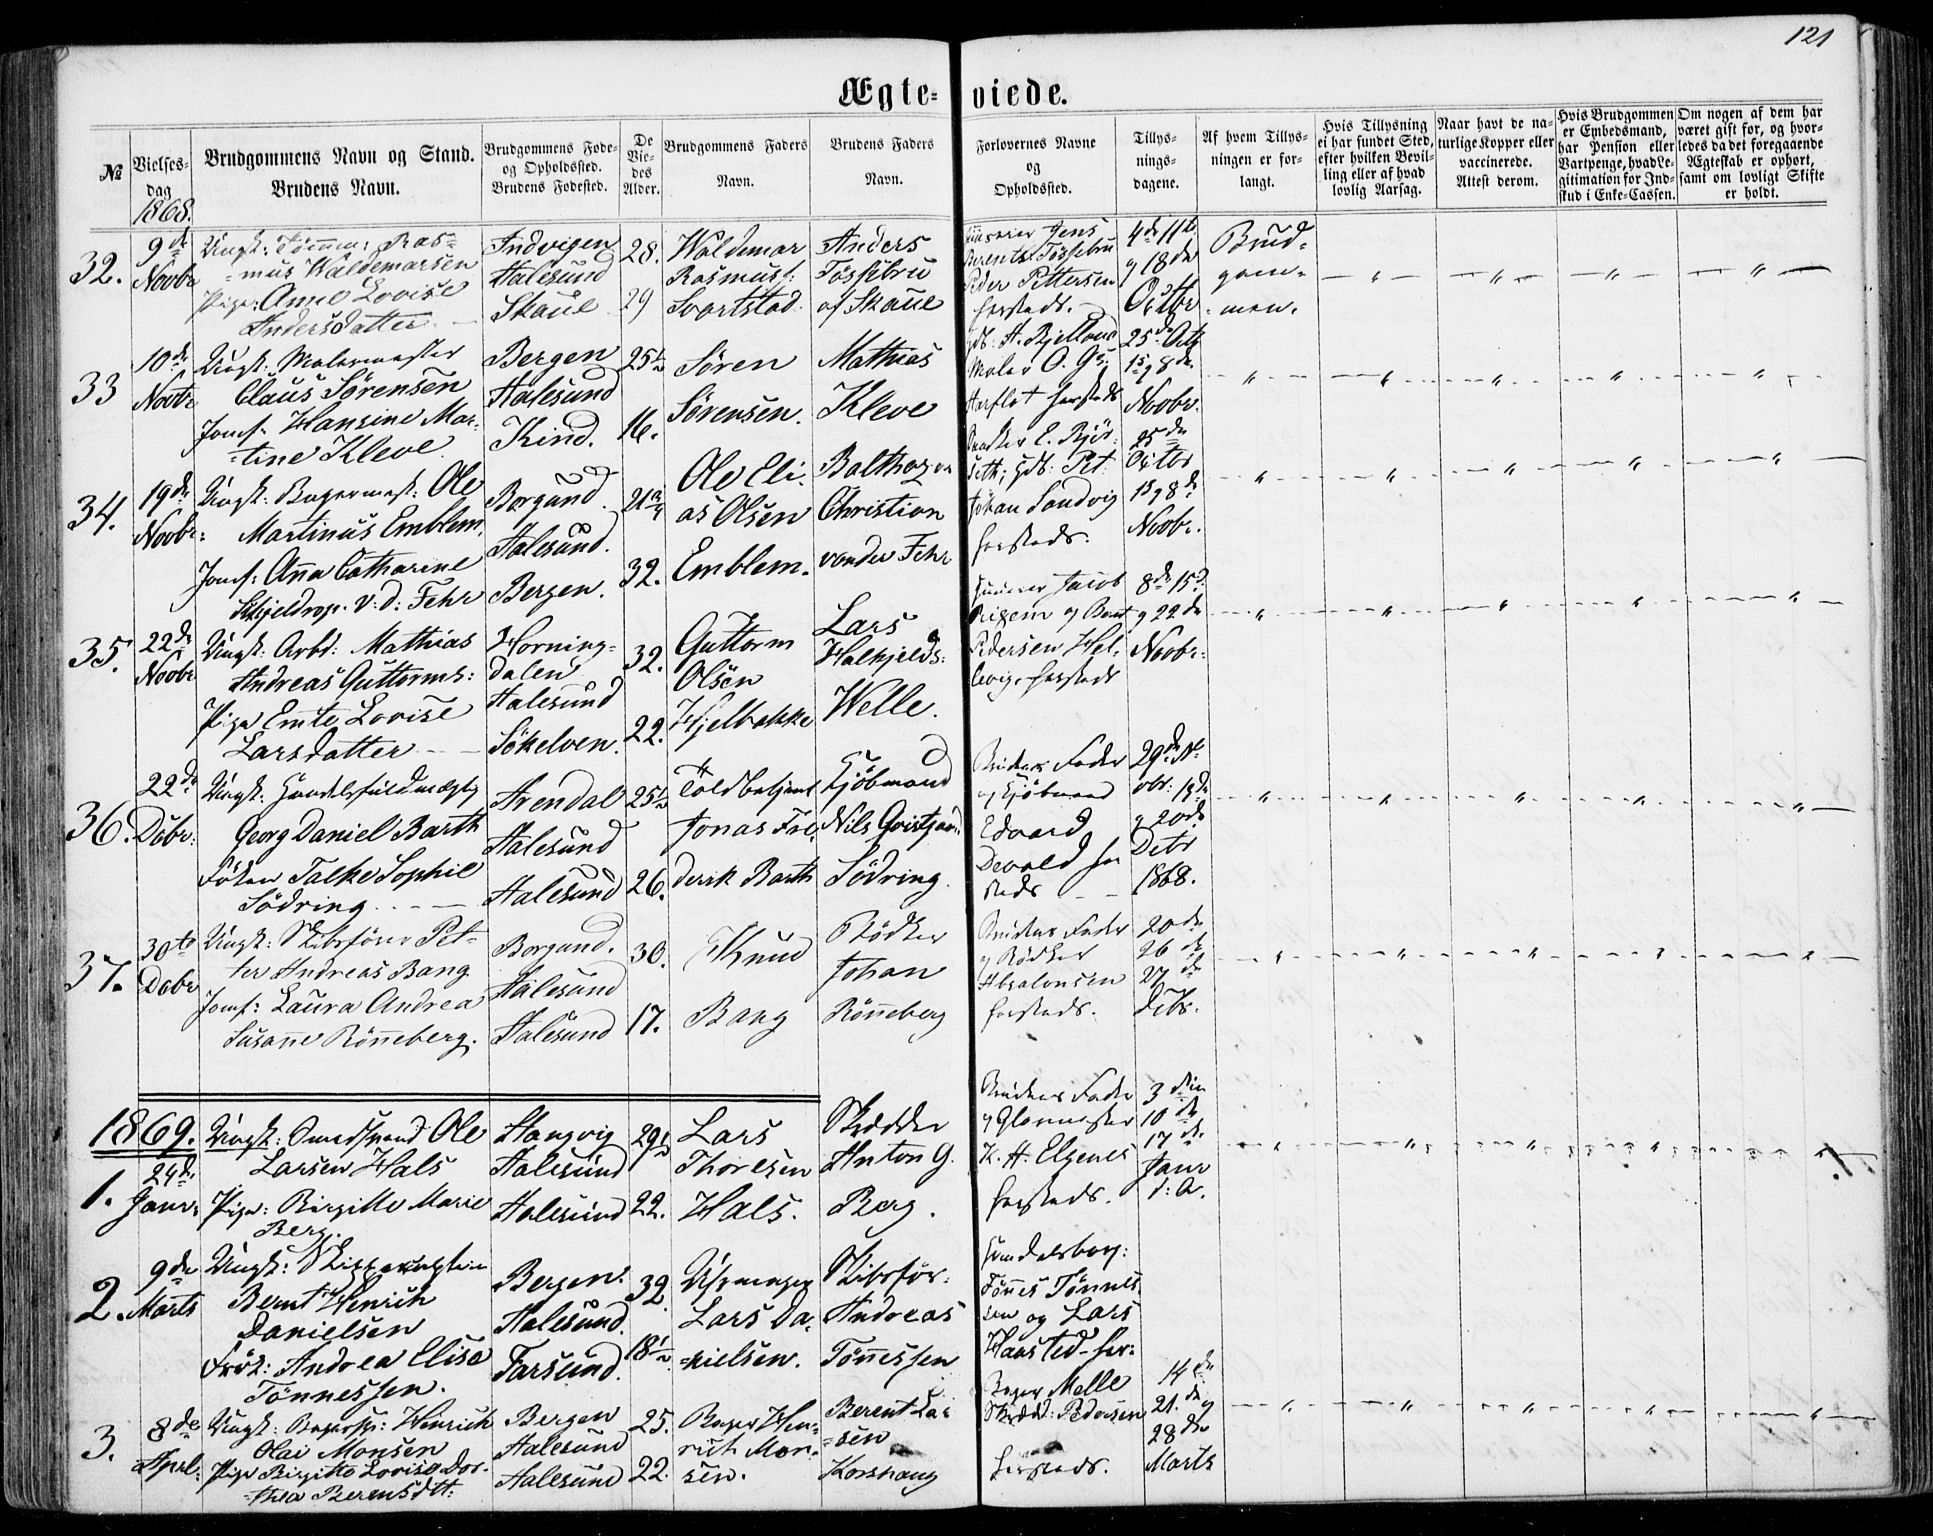 121
Ægte-viede.
№
Vielses-
dag
1868.
Brudgommens Navn og Stand.
Brudens Navn.
Brudgommens Føde-
og Opholdssted.
Brudens Fødested.
De
Vie-
des
Alder.
Brudgommens Faders
Navn.
Brudens Faders
Navn.
Forlovernes Navne
og
Opholdssted.
Tillys-
nings-
dagene.
Af hvem Tillys-
ningen er for-
langt.
Hvis Tillysning
ei har fundet Sted,
efter hvilken Bevil-
ling eller af hvad
lovlig Aarsag.
Naar havt de na-
turlige Kopper eller
vaccinerede.
Attest derom.
Hvis Brudgommen
er Embedsmand,
har Pension eller
Vartpenge, hvad Le-
gitimation for Ind-
skud i Enke-Cassen.
Om nogen af dem har
været gift før, og hvor-
ledes da det foregaaende
Ægteskab er ophørt,
samt om lovligt Skifte
er holdt.
32.
9de
Novbr
Ungk: Tømm: Ras-
mus Waldemarsen
Pige: Anne Lovise
Andersdatter
Indvigen
Aalesund
Skaue
28.
29
Waldemar
Rasmus:
Svartstad
Anders
Tøssebru
af Skaue
Jens
Berents. Tøssebru
Peder Pettersen
hersteds.
4de 11te
g 18de
Octbr
Brud-
gom-
men.
33
10de
Novbr
Ungk: Malermester
Claus Sørensen
Jomf: Hansine Mar-
tine Kleve.
Bergen
Aalesund
Kind.
25½
16.
Søren
Sørensen.
Mathias
Kleve
A. Kjelland
Maler O. Gs:
Aarflot hersteds
25de Octb
1s g 8de
Novbr.
34.
19de
Novbr:
Ungk: Bagermest: Ole
Martinus Emblem.
Jomf: Ana Catharine
Schjeldrop. v: d: Fehr
Borgund.
Aalesund.
Bergen.
21¾
32.
Ole Eli-
as Olsen
Emblem.
Balthazar
Christian
vonder Fehr
E. Bjør-
seth; Pet.
Johan Sandvig
hersteds.
25de
Octbr
1s g 8de
Novbr.
35.
22de
Novbr
Ungk: Arbd: Mathias
Andreas Guttorms:
Pige Emte Lovise
Larsdatter
Horning-
dalen
Aalesund
Søkelven.
32.
22.
Guttorm
Olsen
Hjelbakke
Lars
Halkjelds:
Welle.
Jacob
Brixem og Bernt
Pedersen Hel-
levig. hersteds
8de 15de
g 22de
Novbr:
36.
22de
Debr:
Ungk: Handelsfuldmægtig
Georg Daniel Barth
Frøken Talke Sophie
Södring
Arendal
Aalesund
Aalesund
25½
26.
Toldbetjent
Jonas Fre-
derik Barth
Kjøbmand
Nils Qvistgaard
Södring.
Brudens Fader
og Kjøbmand
Edvard
Devold her
steds
29de No-
vbr: 13de
g 20de
Debr
1868.
37.
30te
Debr
Ungk: Skibsfører Pet-
ter Andreas Bang
Jomf: Laura Andrea
Susanne Rönneberg.
Borgund.
Aalesund
Aalesund
30.
17.
Knud
Bang
Bødker
Johan
Rönneberg
Brudens Fader
og Bødker
Absalonsen
hersteds.
20de
26de
27de
Debr.
1869.
1.
24de
Janr:
Ungk: Smedsvend Ole
Larsen Hals
Pige: Birgitte Marie
Berg.
Hangvig
Aalesund
Aalesund
29½
22.
Lars
Thoresen
Hals.
Skrædder
Anton G.
Berg.
Brudens Fader
og Glarmester
K. H. Elgenes
hersteds.
3die
10de
17de
Janr
d: A.
2.
9de
Marts
Ungk: Skipperborger
Bernt Henrich
Danielsen
Frøk: Andrea Elisa
Tönnessen.
Bergen.
Aalesund.
Farsund.
32.
18½
Lars Da-
nielsen.
Skibsfør-
Andreas
Tönnessen
Handelsborg:
Tönnes Tönnes-
sen og Lars
Haasted her:
3.
8de
April:
Ungk: Bagersv: Henrich
Olai Monsen
Pige Birgitte Lovise Dor-
thea Berensdtt:
Bergen
Aalesund
Aalesund
25.
22.
Bager Hen-
rich Mon-
sen.
Berent La-
sen
Korshaug
Bager Melle
Skrædd: Pedersen
hersteds.
14de
21de g
28de
Marts